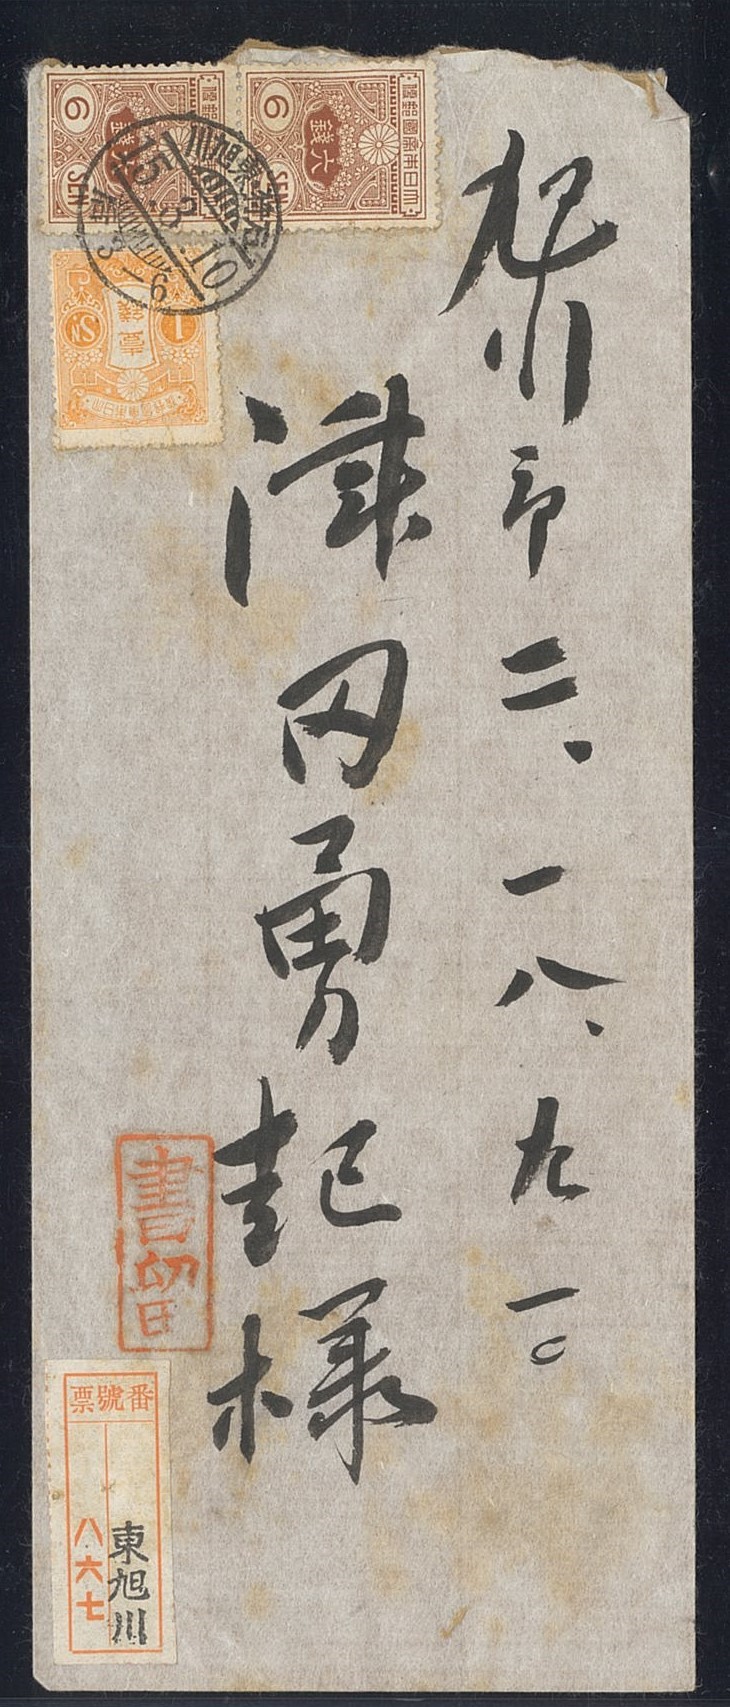 旭川市二、一八、九一〇
津田勇起様
書留
番號票
東旭川
八六七
大日本帝國郵便
六錢
6
SEN
6
SEN
大日本帝國郵便
壹錢
1
SN
東旭川
15.3.10
3-6